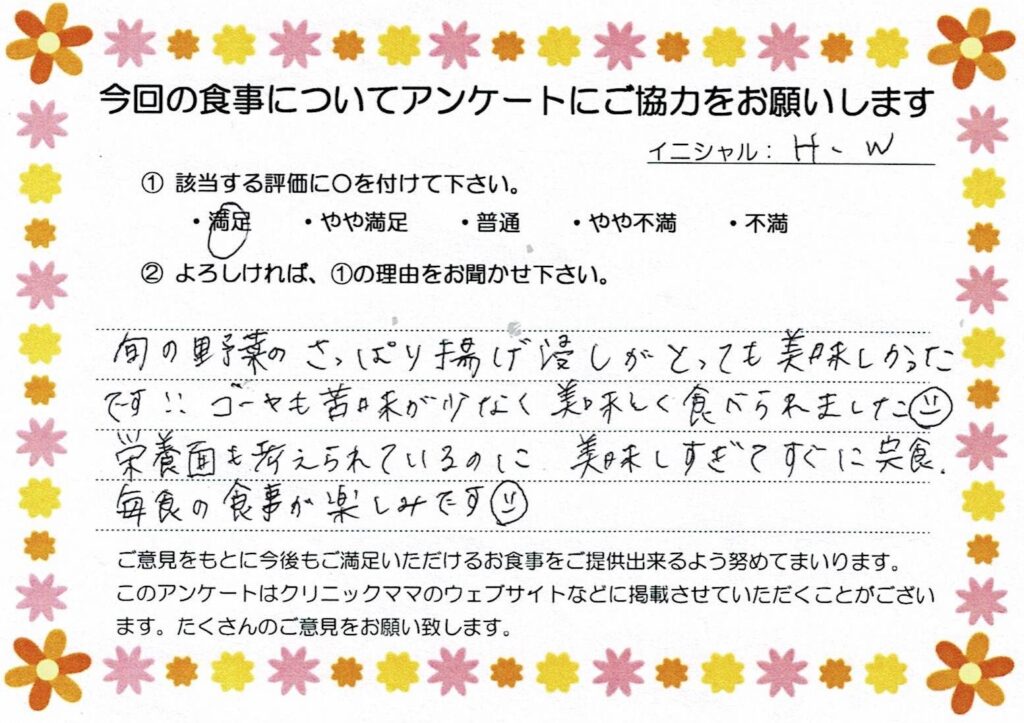 今回の食事についてアンケートにご協力をお願いします
イニシャル： H. W
① 該当する評価に〇を付けて下さい。
・満足 ・やや満足 ・普通 ・やや不満 ・不満
② よろしければ、①の理由をお聞かせ下さい。
旬の野菜のさっぱり揚げ浸しがとっても美味しかった
です!! ゴーヤも苦味が少なく美味しく食べられました
栄養面も考えられているのに 美味しすぎてすぐに完食.
毎食の食事が楽しみです
ご意見をもとに今後もご満足いただけるお食事をご提供出来るよう努めてまいります。
このアンケートはクリニックママのウェブサイトなどに掲載させていただくことがござい
ます。たくさんのご意見をお願い致します。